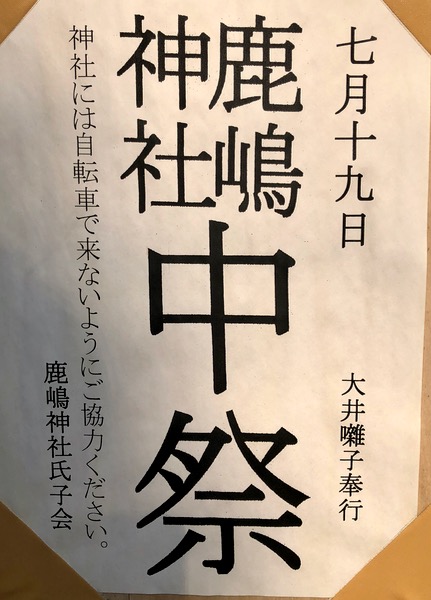 七月十九日
大井囃子奉行
鹿嶋
神社
中祭
神社には自転車で来ないようにご協力ください。
鹿嶋神社氏子会